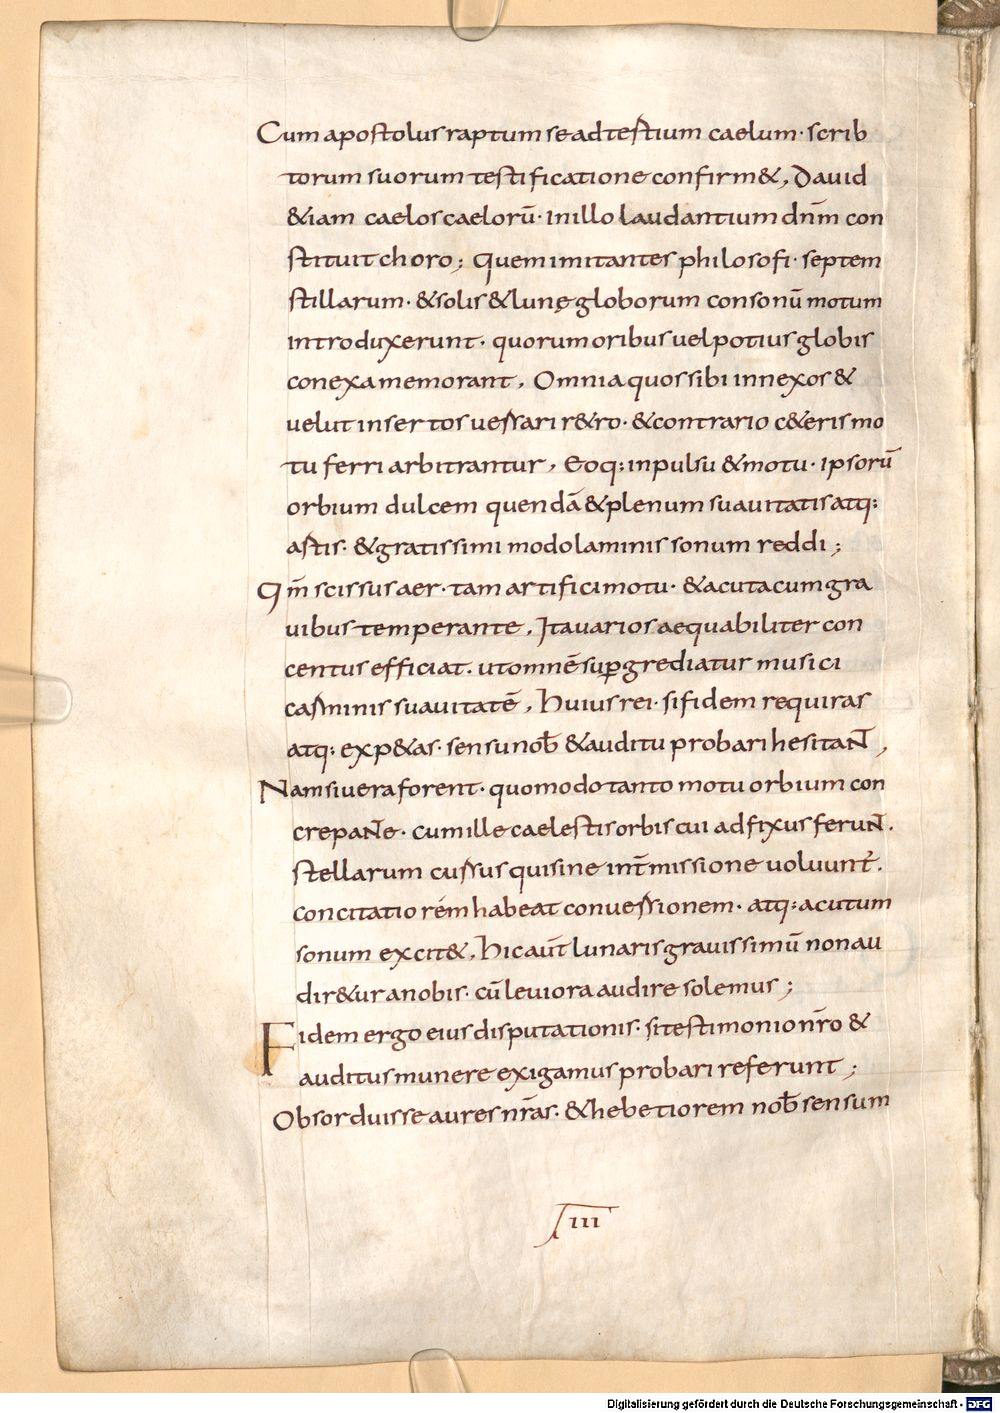 Cum apostolus raptum se ad testium caelum· scrib
torum suorum testificatione confirm&, David
&iam caelos caelorū· inillo laudantium dn̄m con
stituit choro; Quem imitantes philosofi· septem
stillarum· &solis &lunę globorum consonū motum
introduxerunt· quorum oribus uel potius globis
conexa memorant, Omnia quos sibi innexos &
uelut insertos uersari r&ro· &contrario c&eris mo
tu ferri arbitrantur, Eoq: inpulsu &motu· ipsorū
orbium dulcem quendā &plenum suauitatis atq:
astis· &gratissimi modolaminis sonum reddi;
Qm̄ scissus aer· tam artifici motu· &acuta cum gra
uibus temperante, Ita uarios aequabiliter con
centus efficiat· ut omnē sup̱grediatur musici
carminis suauitatē, huius rei· si fidem requiras
atq: exp&as· sensu nob̄ &auditu probari hesitaNT,
Nam si uera forent· quomodo tanto motu orbium con
crepaNTe· cum ille caelestis orbis cui adfixus feruNT·
stellarum cursus qui sine int̄missione uoluunt̄·
concitatiorem habeat conuersionem· atq: acutum
sonum excit&, hic aūt lunaris grauissimū non au
dir&ur a nobis· cū leuiora audire solemus;
Fidem ergo eius disputationis· si testimonio nr̄o &
auditus munere exigamus probari referunt;
Obsorduisse aures nr̄as· &hebetiorem nob̄ sensum
III
Digitalisierung gefördert durch die Deutsche Forschungsgemeinschaft - DFG